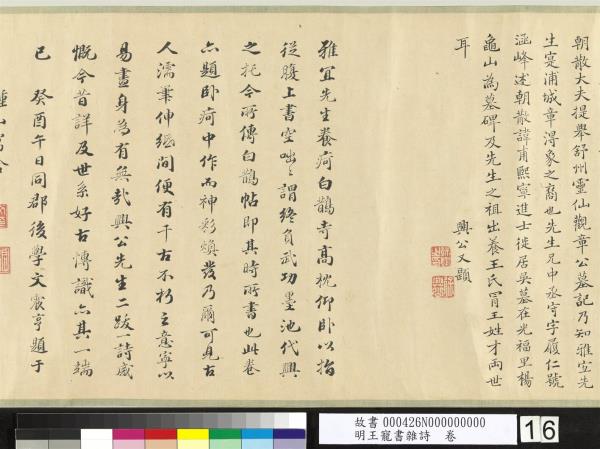 朝散大夫提舉舒州靈仙觀章公墓記乃知雅宜先
生寔浦城章得象之裔也先生兄中丞守字履仁號
涵峰述朝散諱甫熙寧進士徙居吳墓在光福里楊
龜山為墓碑及先生之祖出養王氏冐王姓才兩世
耳
興公又題
雅宜先生養疴白鵲寺高枕仰卧以指
從腹上書空咄〻謂終負武功墨池代興
之托今所傳白鵲帖即其時所書也此卷
亦題卧疴中作而神彩煥發乃爾可見古
人濡筆伸紙間便有千古不朽之意寧以
易畫身為有無哉興公先生二跋一詩感
慨今昔詳及世系好古博識亦其一端
已 癸酉午日同郡後學文震亨題于
故書 000426N000000000
明王寵書雜詩 卷
16